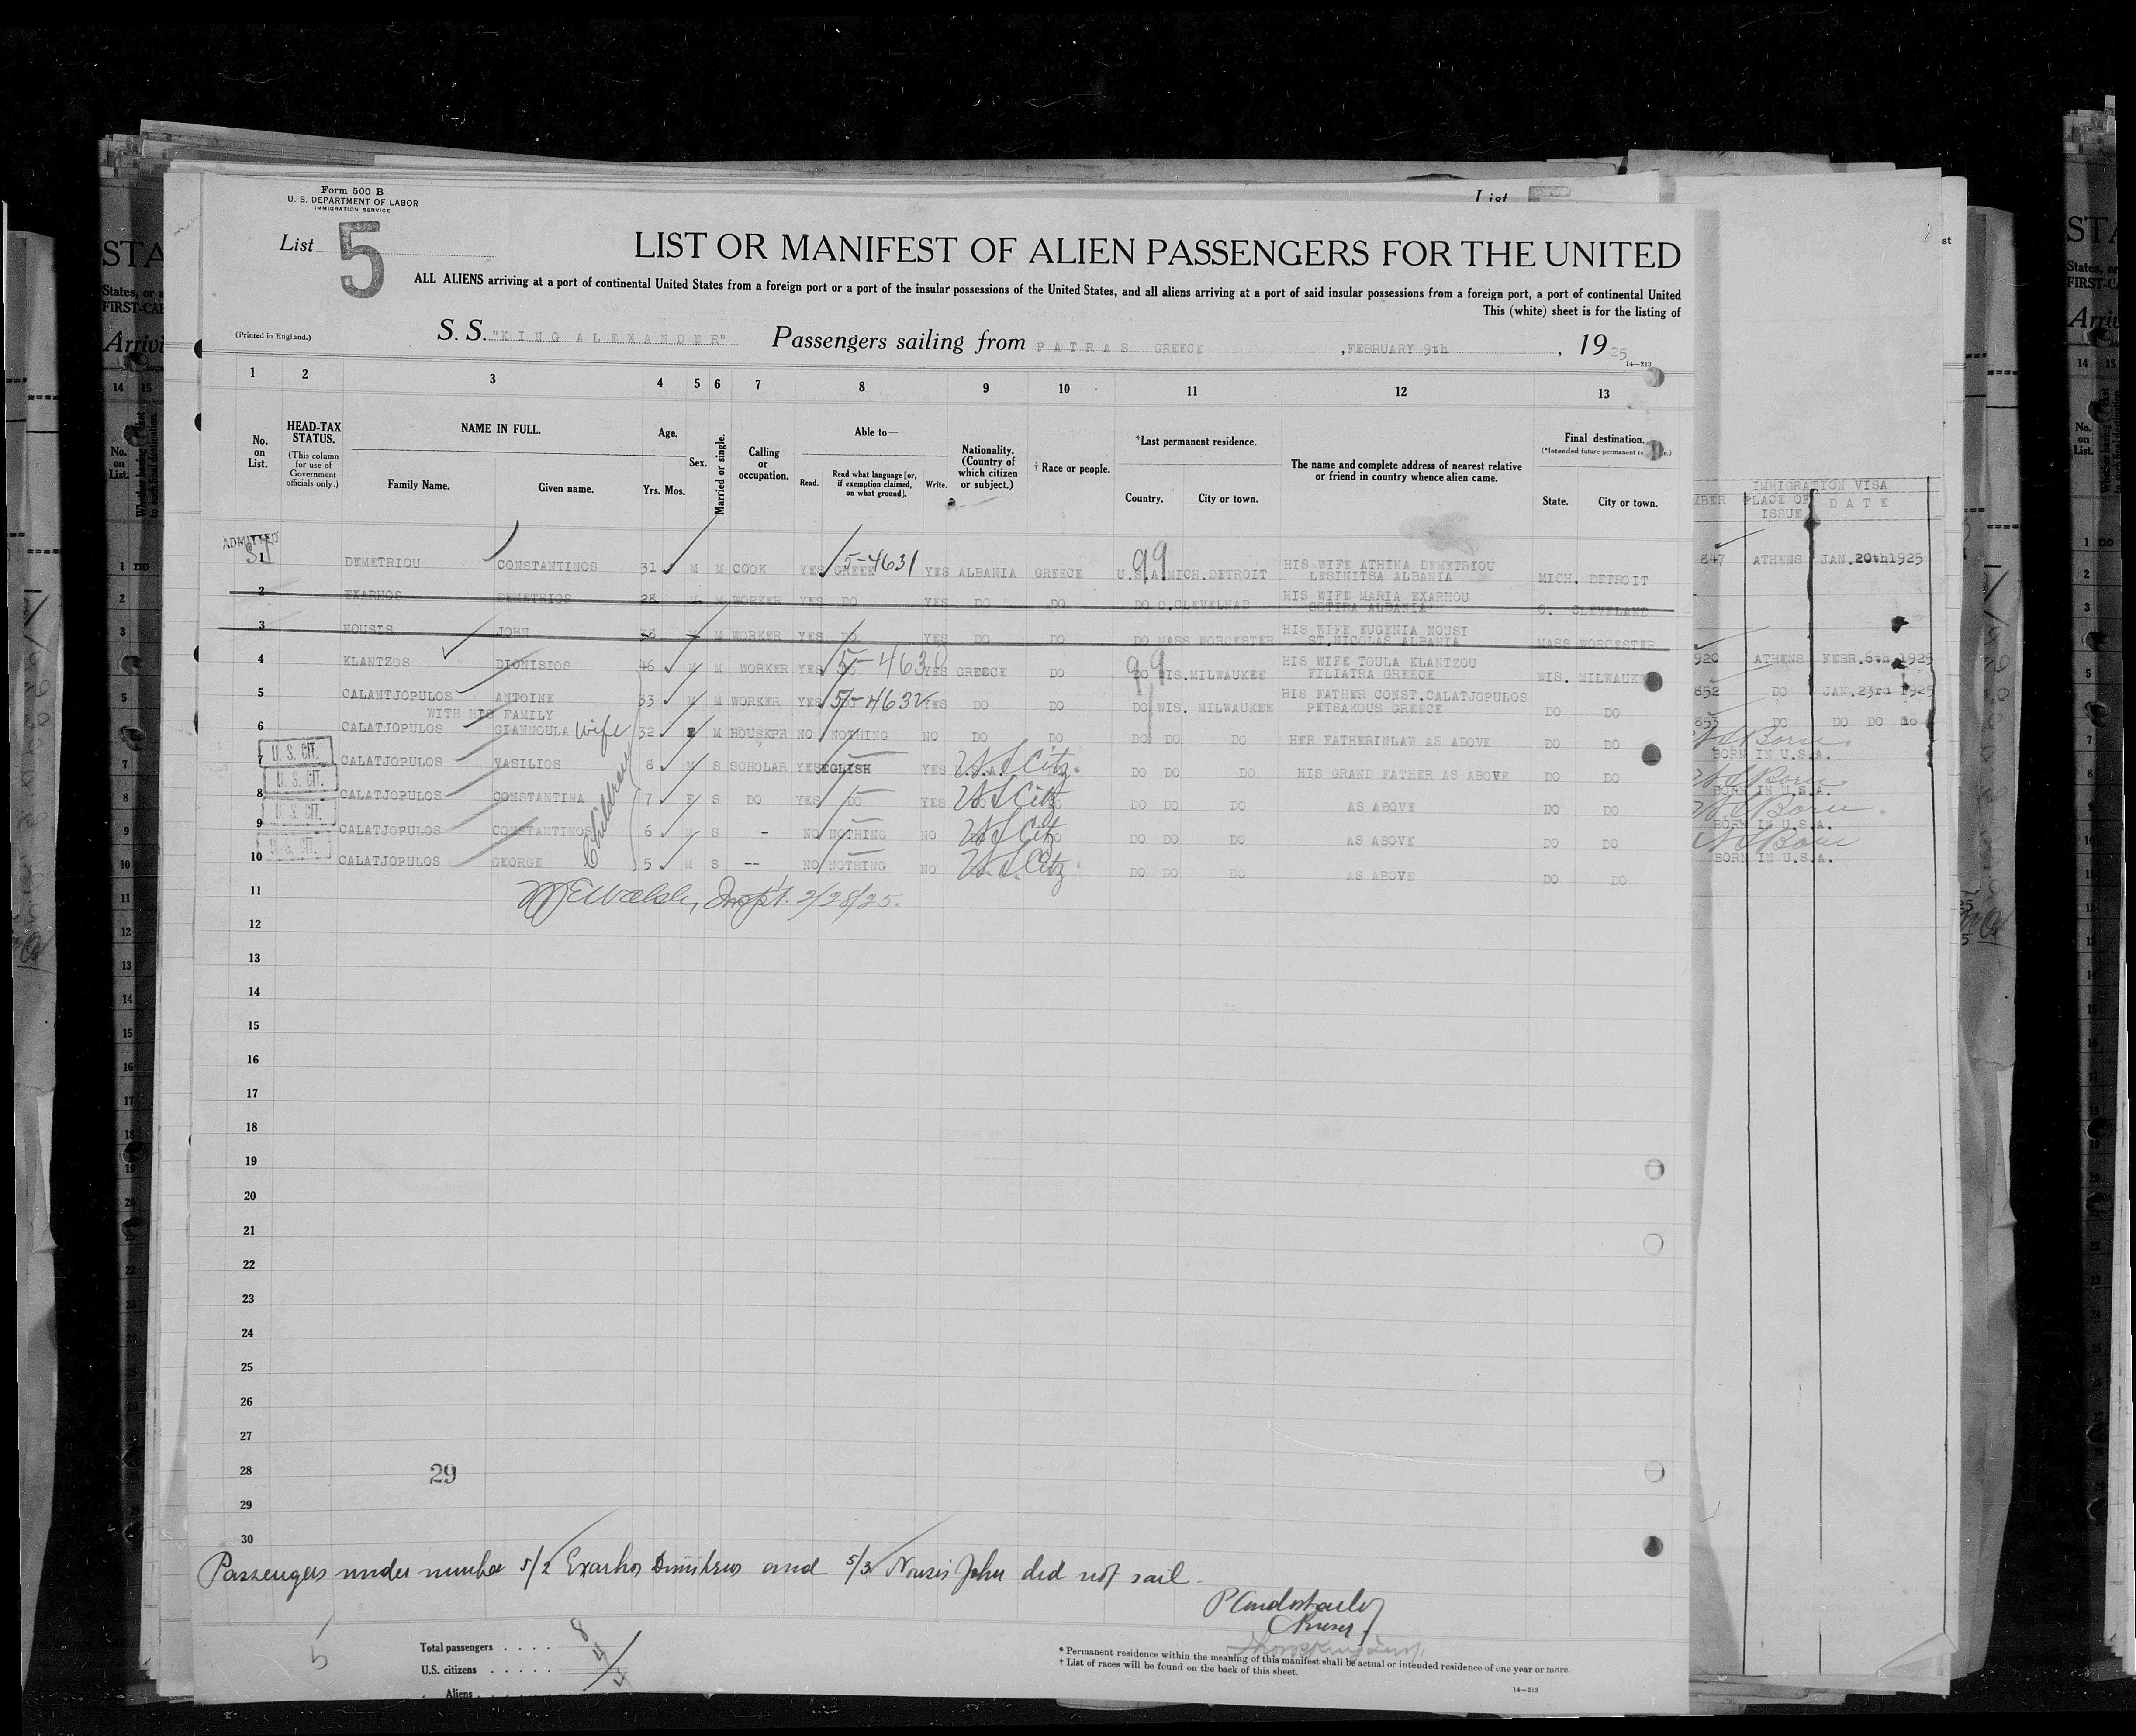 Form 500 B
U. S. DEPARTMENT OF LABOR
IMMIGRATION SERVICE
List
List 5
LIST OR MANIFEST OF ALIEN PASSENGERS FOR THE UNITED
ALL ALIENS arriving at a port of continental United States from a foreign port or a port of the insular possessions of the United States, and all aliens arriving at a port of said insular possessions from a foreign port, a port of continental United
This (white) sheet is for the listing of
(Printed in England.)
S. S. "KING ALEXANDER" Passengers sailing from PATRAS GREECE , FEBRUARY 9th , 1925
14—213
1 2 3 4 5 6 7 8 9 10 11 12 13
No. on List.
HEAD-TAX STATUS. (This column for use of Government officials only.)
NAME IN FULL.
Family Name. Given name.
Age. Yrs. Mos.
Sex.
Married or single.
Calling or occupation.
Able to— Read. Read what language [or, if exemption claimed, on what ground]. Write.
Nationality. (Country of which citizen or subject.)
† Race or people.
*Last permanent residence. Country. City or town.
The name and complete address of nearest relative or friend in country whence alien came.
Final destination. (*Intended future permanent
State. City or town.
IMMIGRATION VISA
PLACE OF ISSUE DATE
ADMITTED
1 DEMETRIOU CONSTANTINOS 31 M M COOK YES GREEK 5-4631 YES ALBANIA GREECE 99 U.S.A MICH.DETROIT HIS WIFE ATHINA DEMETRIOU LESINITSA ALBANIA MICH. DETROIT 847 ATHENS JAN.20th1925
2 EXARHOS DEMETRIOS 28 M M WORKER YES DO YES DO DO DO O.CLEVELNAD HIS WIFE MARIA EXARHOU SOTIRA ALBANIA O. CLEVELAND
3 NOUSIS JOHN 38 M M WORKER YES DO YES DO DO DO MASS WORCESTER HIS WIFE EUGENIA NOUSI ST.NICOLAS ALBANIA MASS WORCESTER
4 KLANTZOS DIONISIOS 46 M M WORKER YES DO 5-4630 YES GREECE DO 99 DO WIS.MILWAUKEE HIS WIFE TOULA KLANTZOU FILIATRA GREECE WIS. MILWAUKEE 920 ATHENS FEBR.6th 1925
5 CALANTJOPULOS ANTOINE 33 M M WORKER YES DO 5-4632 YES DO DO DO WIS. MILWAUKEE HIS FATHER CONST.CALATJOPULOS PETSAKOUS GREECE DO DO 852 DO JAN.23rd 1925
WITH HIS FAMILY
6 CALATJOPULOS GIANNOULA Wife 32 F M HOUSKPR NO NOTHING NO DO DO DO DO DO HER FATHERINLAW AS ABOVE DO DO 853 DO DO DO DO
U. S. CIT.
7 CALATJOPULOS VASILIOS 8 M S SCHOLAR YES EGLISH YES U.S.A. U S Citz. DO DO DO HIS GRAND FATHER AS ABOVE DO DO US Born BORN IN U.S.A.
U. S. CIT.
8 CALATJOPULOS CONSTANTINA 7 F S DO YES DO YES U S Citz DO DO DO DO AS ABOVE DO DO US Born BORN IN U.S.A.
U. S. CIT.
9 CALATJOPULOS CONSTANTINOS 6 M S - NO NOTHING NO U S Citz DO DO DO DO AS ABOVE DO DO US Born BORN IN U.S.A.
U. S. CIT.
10 CALATJOPULOS GEORGE 5 M S -- NO NOTHING NO U S Citz DO DO DO AS ABOVE DO DO US Born BORN IN U.S.A.
Children
11 Walsh, Insp't. 2/28/25.
12
13
14
15
16
17
18
19
20
21
22
23
24
25
26
27
28 29
29
30
Passengers under number 5/2 Exarhos Dimitrius and 5/3 Nousis John did not sail.
Purser
5
Total passengers . . . . 8
U.S. citizens . . . . . . 4
Aliens 4
* Permanent residence within the meaning of this manifest shall be actual or intended residence of one year or more
† List of races will be found on the back of this sheet.
14—213